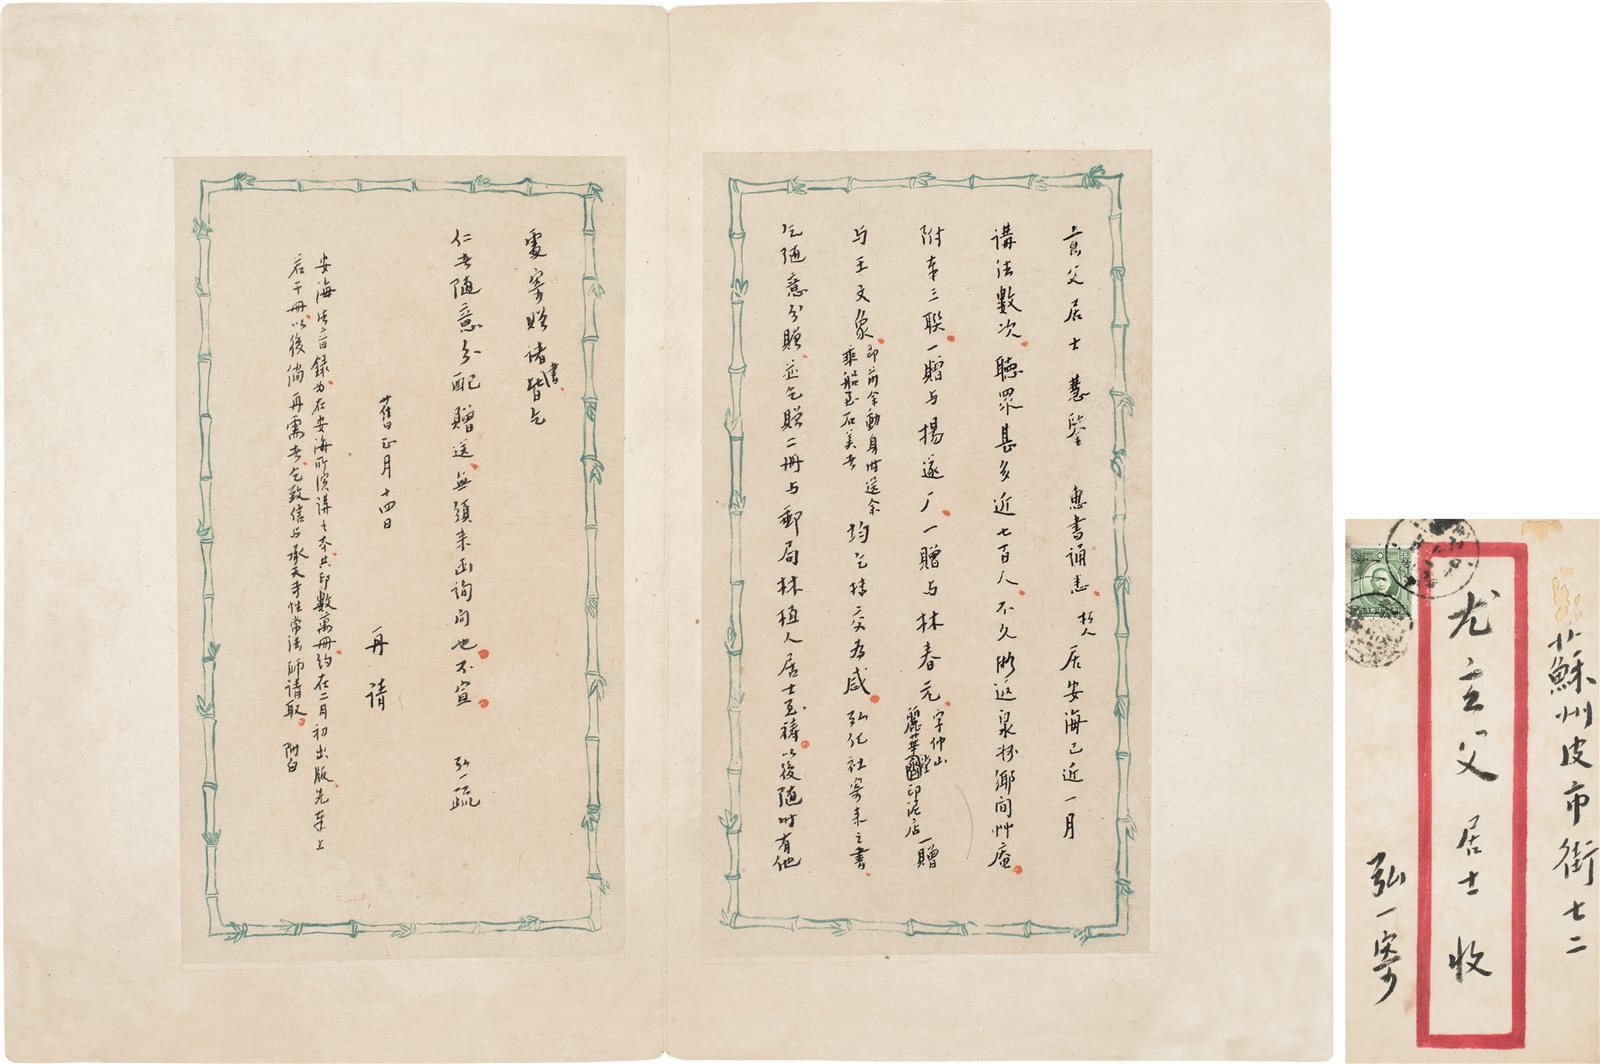 玄父居士慧鑒 惠書誦悉 朽人居安海已近一月
講法數次 聽眾甚多近七百人 不久將返泉州鄉間艸庵
附奉三聯 一贈与楊遂厂 一贈与林春元 字仲山 麗華堂印泥店 一贈
与王文象 即前余動身時送余乘船至石美者 均乞轉交為感 弘化社寄來之書
乞隨意分贈 並乞贈二冊与郵局林植人居士至禱 以後隨時有他
處寄贈諸書皆乞
仁者隨意分配贈送 無須來函詢問也 不宣 弘一疏
舊正月十四日
再請
安海法音録為在安海所演講之本共印數萬冊約在二月初出版先奉上
若干冊以後倘再需者乞致信与承天寺性常法師請取 附白
蘇州皮市街七二
尤玄父居士收
弘一寄